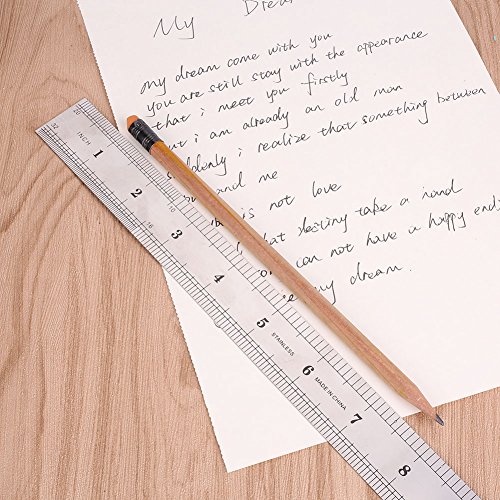 My Dream
my dream come with you
you are still stay with the appearance
that i meet you firstly
but i am already an old man
suddenly i realize that something between
and me
is not love
that destiny take a hand
can not have a happy endi
my dream.
INCH 1 2 3 4 5 STAINLESS 6 MADE IN CHINA 7 8